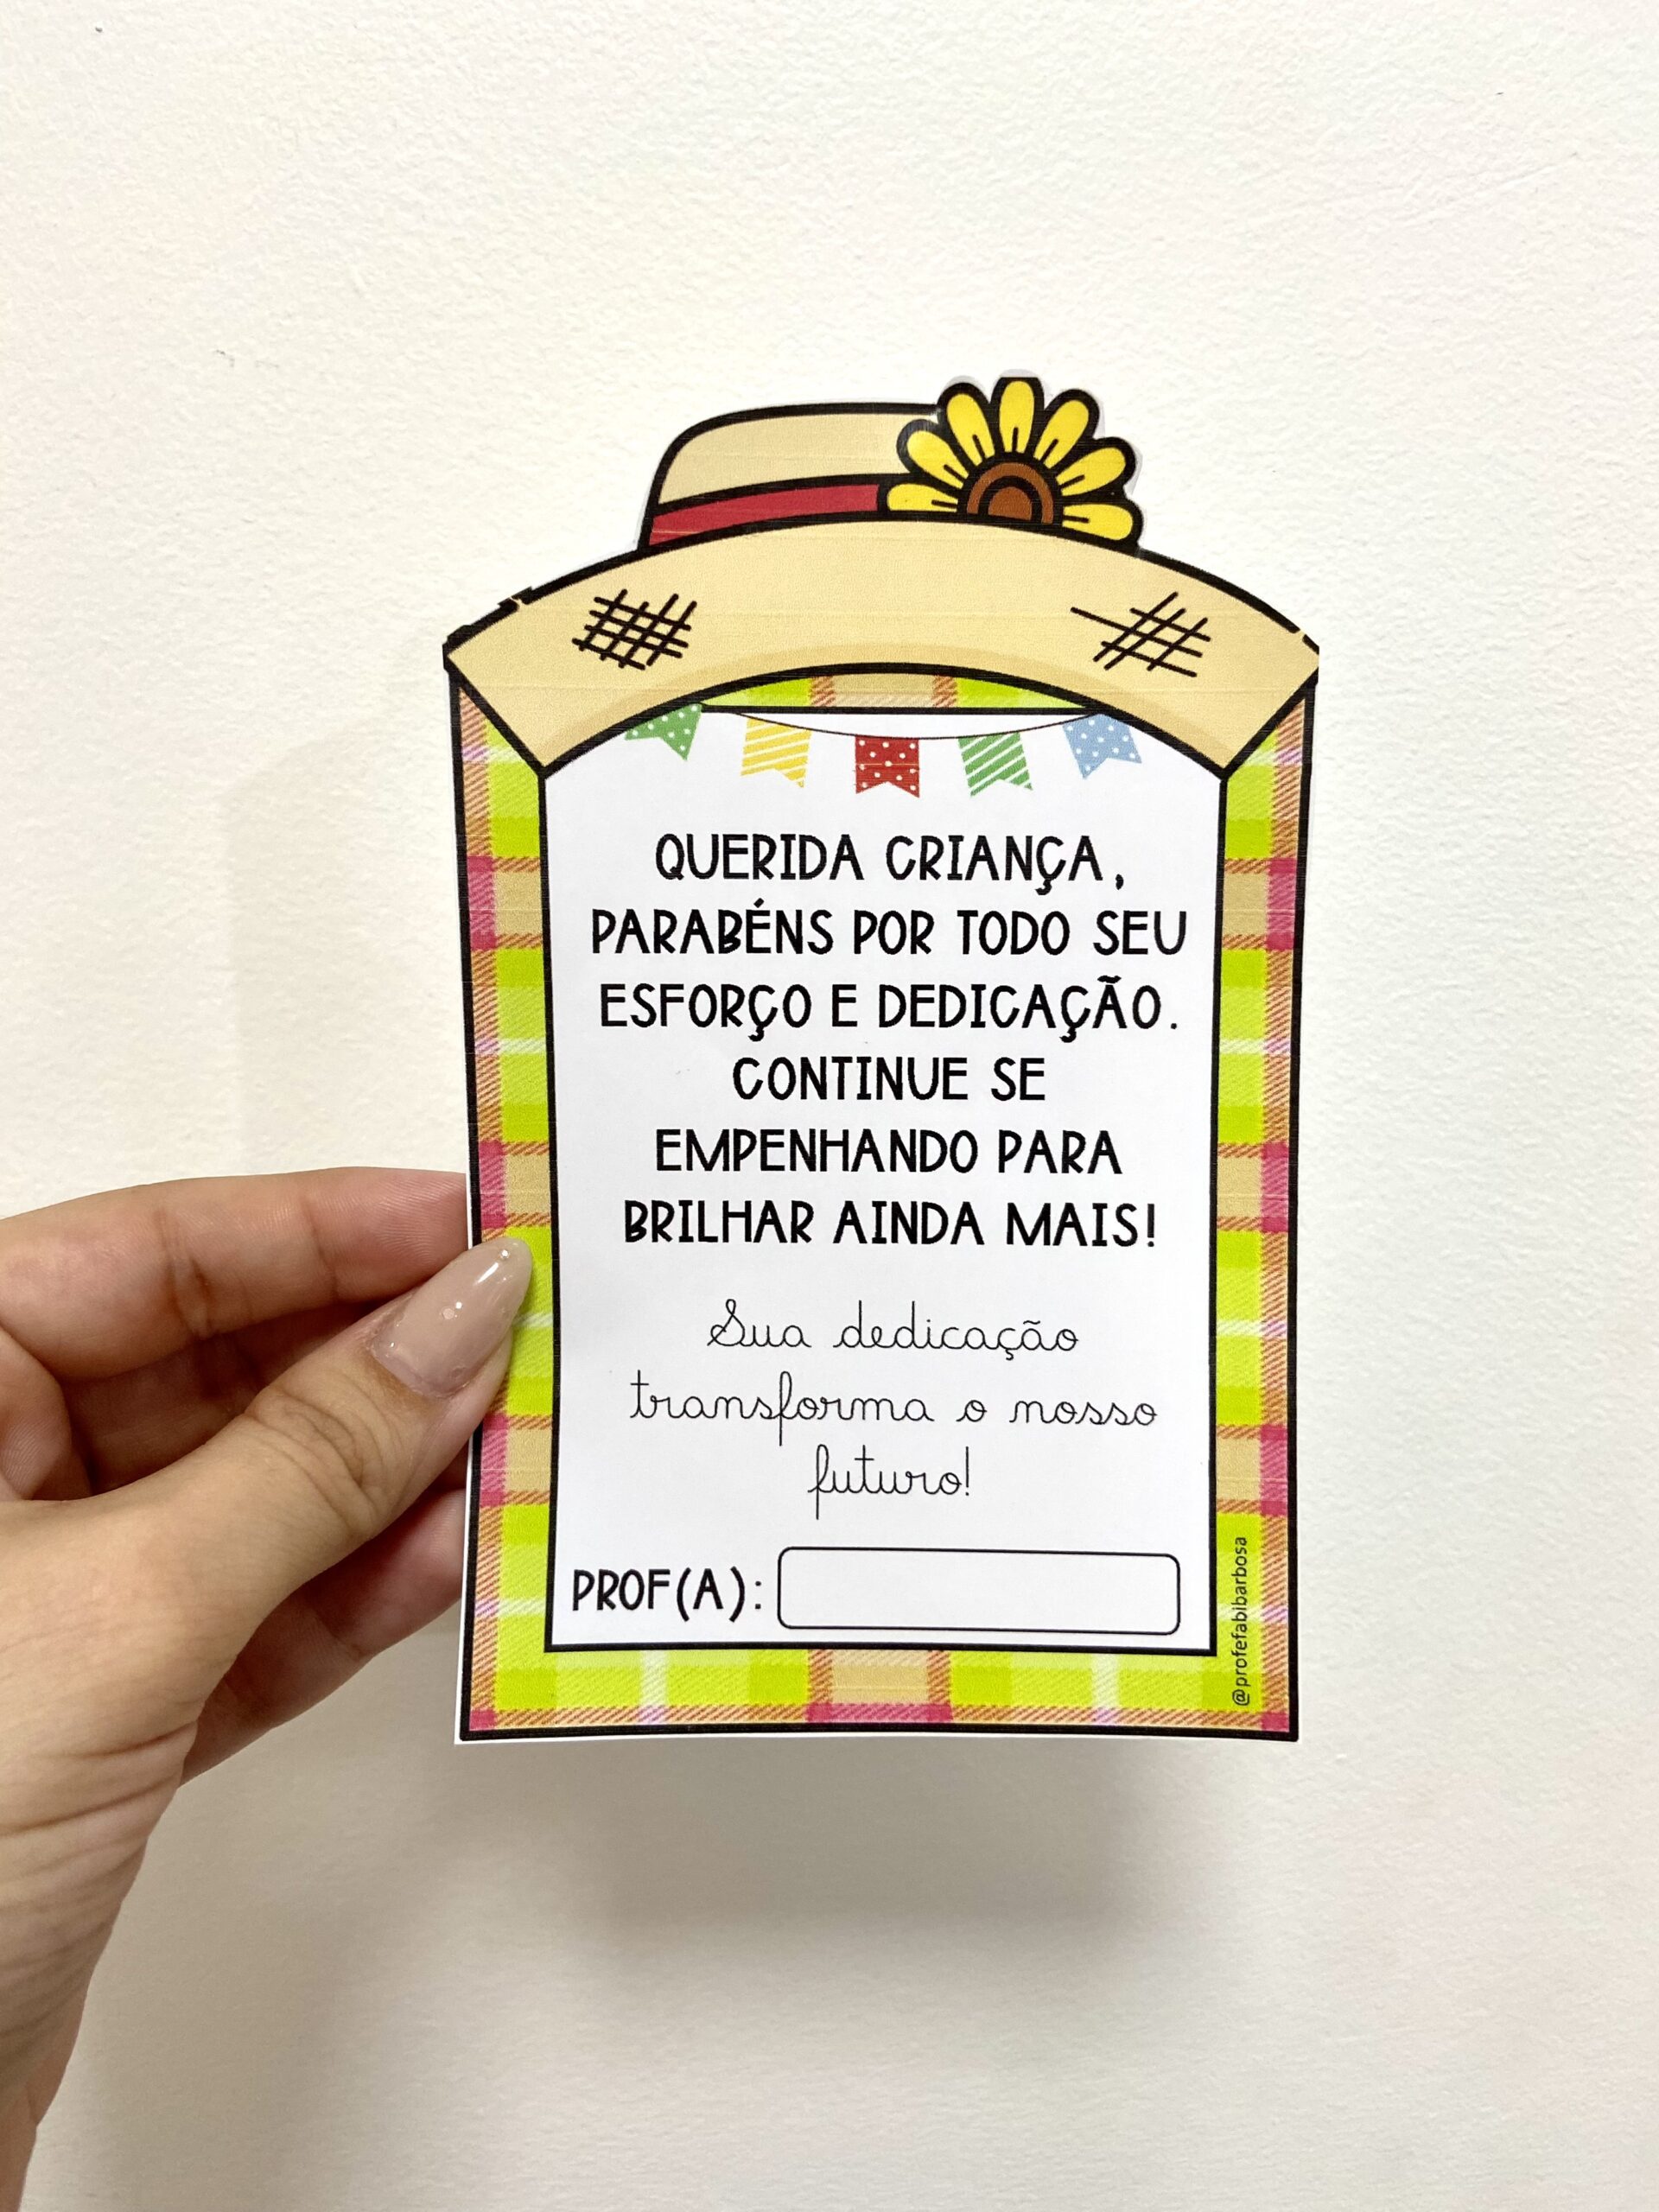 QUERIDA CRIANÇA,
PARABÉNS POR TODO SEU
ESFORÇO E DEDICAÇÃO.
CONTINUE SE
EMPENHANDO PARA
BRILHAR AINDA MAIS!
Sua dedicação
transforma o nosso
futuro!
PROF(A):
@profefabibarbosa